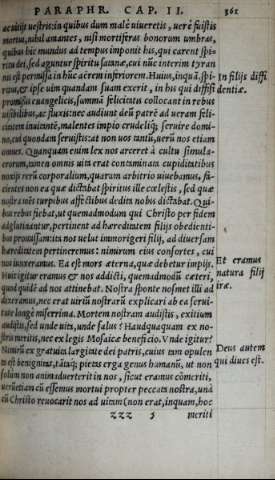 PARAPHR. CAP. II. 361
ac vitijs uestris: in quibus dum malè uiueretis, uerè fuistis
mortui, nihil amantes, nisi mortiferas bonorum umbras,
quibus hic mundus ad tempus imponit his, qui carent spi
ritu dei, sed aguntur spiritu satanæ, cui nūc interim tyran
nis est permissa in hūc aërem inferiorem. Huius, inquā, spi
ritus, & ipse uim quandam suam exerit, in his qui diffisi
promissis euangelicis, summā felicitatis collocant in rebus
uisibilibus, ac fluxis: nec audiunt deū patrē ad ueram feli-
citatem inuitantē, malentes impio crudeliq; seruire domi-
no, cui quondam seruistis: at non uos tantū, uerū nos etiam
omnes. Quanquam enim lex nos arceret à cultu simula-
crorum, tamen omnis uita erat contaminata cupiditatibus
noxijs rerū corporalium, quarum arbitrio uiuebamus, fa-
cientes non ea quæ dictabat spiritus ille cœlestis, sed quæ
nostra mēs turpibus affectibus dedita nobis dictabat. Qui-
bus rebus fiebat, ut quemadmodum qui Christo per fidem
adglutinantur, pertinent ad hæreditatem filijs obedienti-
bus promissam: ita nos uelut immorigeri filij, ad diuersam
hæreditatem pertineremus: nimirum eius consortes, cui
nos iunxeramus. Ea est mors æterna, quæ debetur impijs.
Huic igitur eramus & nos addicti, quemadmodū cæteri,
quod quidē ad nos attinebat. Nostra sponte nosmet illi ad
dixeramus, nec erat uiriū nostrarū explicari ab ea serui-
tute longè miserrima. Mortem nostram audistis, exitium
audistis, sed unde uita, unde salus? Haudquaquam ex no-
stris meritis, nec ex legis Mosaicæ beneficio. Unde igitur?
Nimirū ex gratuita largitate dei patris, cuius tam opulen
ta est benignitas, tātaq; pietas erga genus humanū, ut non
solum non animaduerterit in nos, sicut eramus cōmeriti,
uerūetiam cū essemus mortui propter peccata nostra, unà
cū Christo reuocarit nos ad uitam (non erat, inquam, hoc
zzz 5 meriti
In filijs diffi
dentiæ.
Et eramus
natura filij
iræ.
Deus autem
qui diues est.